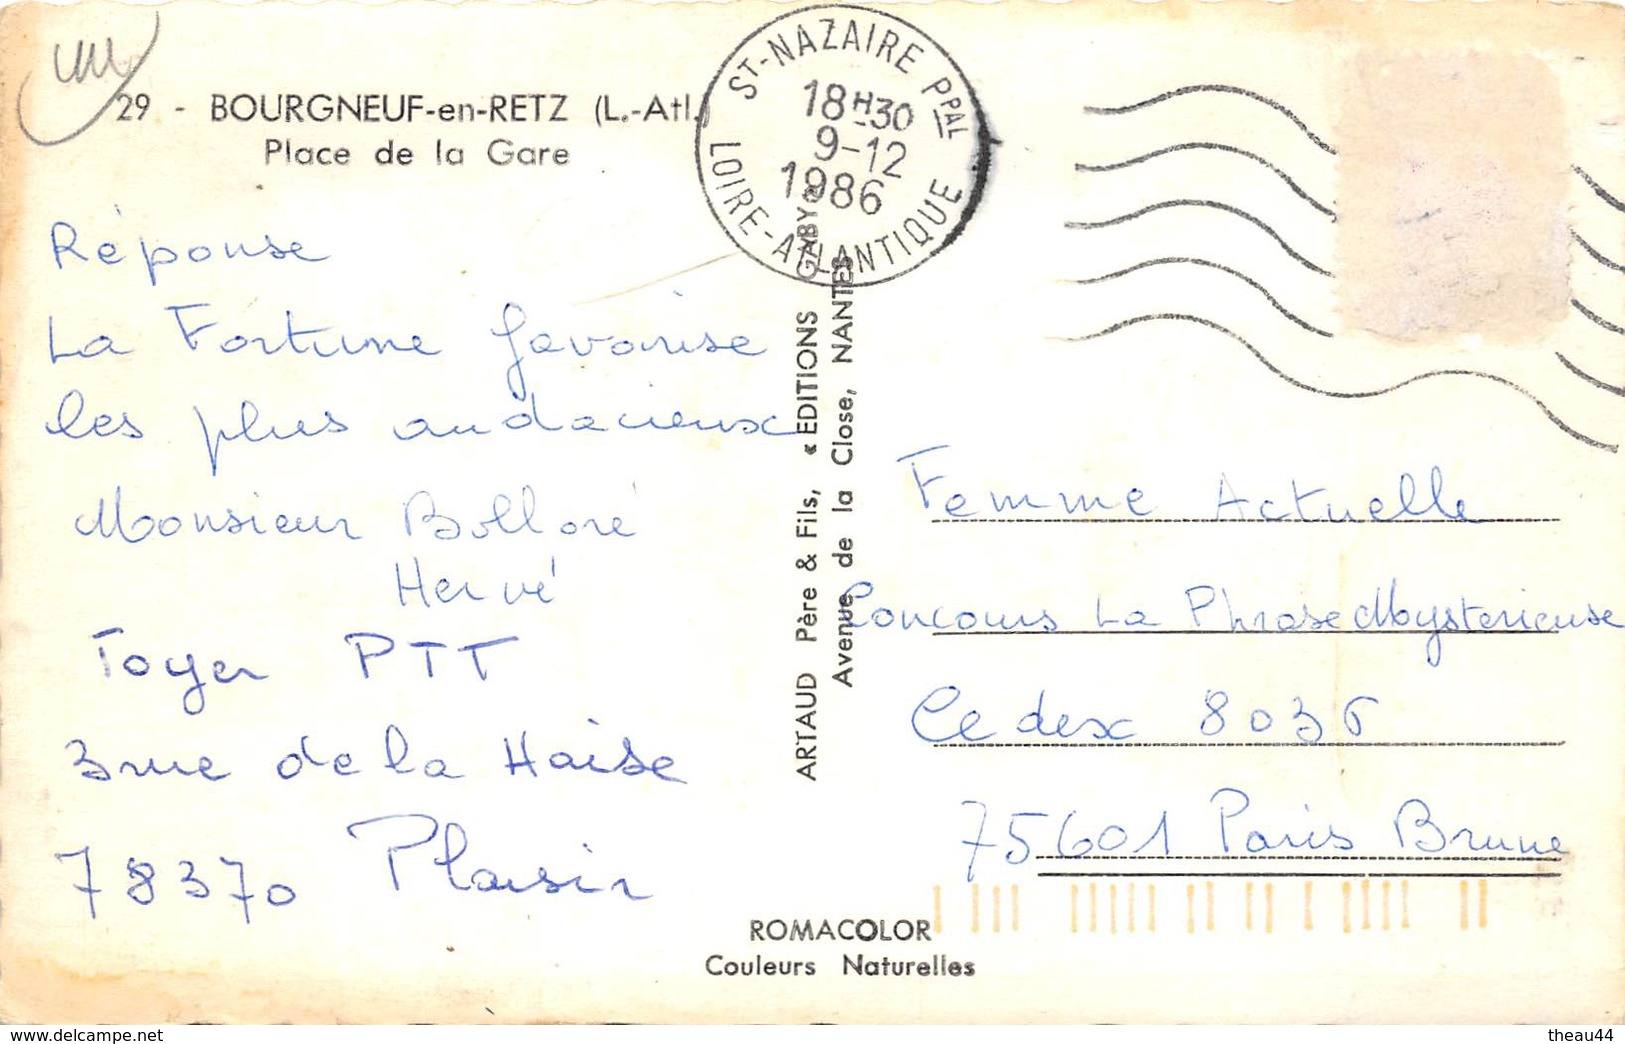 29 - BOURGNEUF-en-RETZ (L.-Atl.)
Place de la Gare
ST-NAZAIRE PPAL
18H30
9-12
1986
LOIRE-ATLANTIQUE
Réponse
La Fortune favorise
les plus audacieux
Monsieur Bolloré
Hervé
Foyer PTT
3 rue de la Haise
78370 Plaisir
ARTAUD Père & Fils, « EDITIONS GABY »
Avenue de la Close, NANTES
Femme Actuelle
Concours La Phrase Mysterieuse
Cedex 8036
75601 Paris Brune
ROMACOLOR
Couleurs Naturelles
www.delcampe.net
theau44